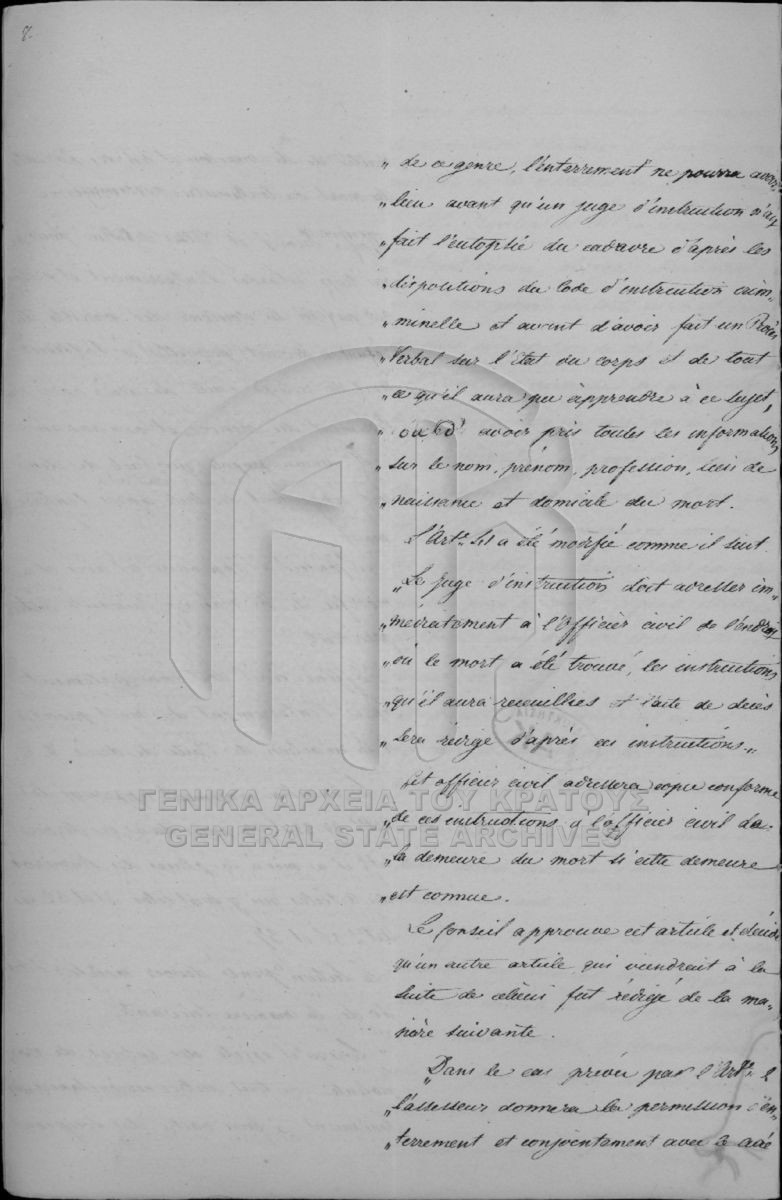 8
„ de ce genre, l'enterrement ne pourra avoir
„ lieu avant qu'un juge d'instruction n'ait
„ fait l'autopsie du cadavre d'après les
„ dispositions du Code d'instruction crim-
„ minelle et avant d'avoir fait un Procès
„ Verbal sur l'état du corps et de tout
„ ce qu'il aura pu apprendre à ce sujet,
„ ou d'avoir pris toutes les informations
„ sur le nom, prénom, profession, lieu de
„ naissance et domicile du mort.
L'Art. 51 a été modifié comme il suit
„ Le juge d'instruction doit adresser im-
„ médiatement à l'Officier civil de l'endroit
„ où le mort a été trouvé, les instructions
„ qu'il aura recueillies et l'acte de décès
„ sera rédigé d'après ces instructions.„
Cet officier civil adressera copie conforme
„ de ces instructions à l'officier civil de
„ la demeure du mort si cette demeure
„ est connue.
Le Conseil approuve cet article et décide
qu'un autre article qui viendrait à la
suite de celui-ci fut rédigé de la ma-
nière suivante.
„ Dans le cas prévu par l'Art.
„ l'assesseur donnera la permission d'en-
„ terrement et conjointement avec le
ΓΕΝΙΚΑ ΑΡΧΕΙΑ ΤΟΥ ΚΡΑΤΟΥΣ
GENERAL STATE ARCHIVES